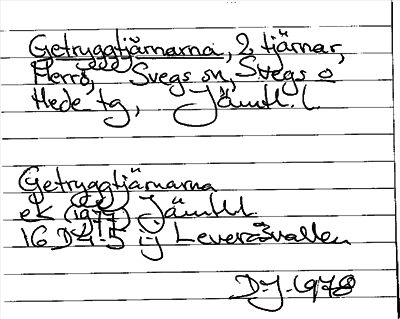 Getryggtjärnarna, 2 tjärnar,
Herrö, Svegs sn, Svegs o
Hede tg, Jämtl. l.
Getryggtjärnarna
ek (1977) Jämtl.l.
16 D 4-5 ij Leveråsvallen
DJ. 1978